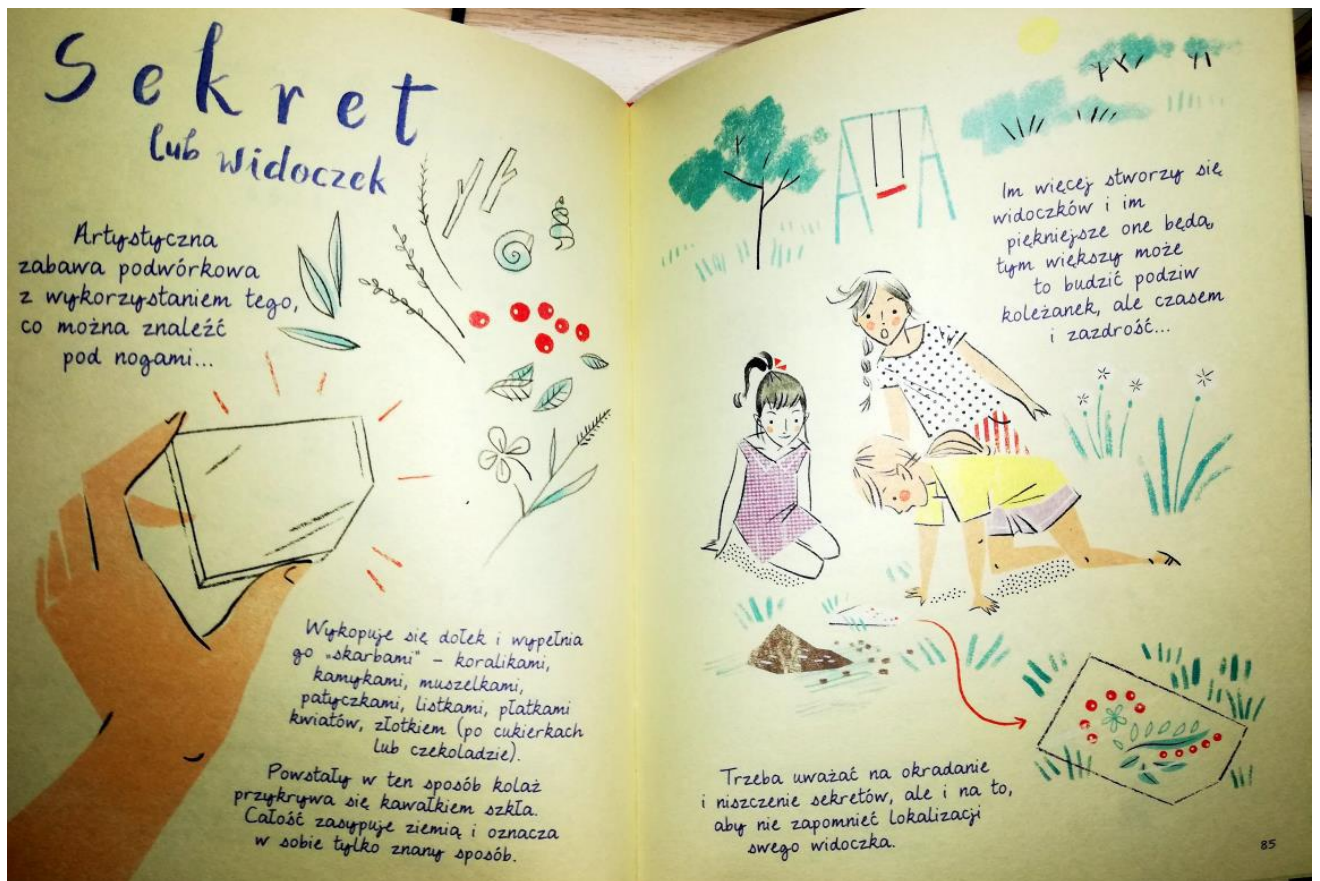 Sekret
lub widoczek
Artystyczna
zabawa podwórkowa
z wykorzystaniem tego,
co można znaleźć
pod nogami...
Wykopuje się dołek i wypełnia
go „skarbami" – koralikami,
kamykami, muszelkami,
patyczkami, listkami, płatkami
kwiatów, złotkiem (po cukierkach
lub czekoladzie).
Powstały w ten sposób kolaż
przykrywa się kawałkiem szkła.
Całość zasypuje ziemią i oznacza
w sobie tylko znany sposób.
Im więcej stworzy się
widoczków i im
piękniejsze one będą,
tym większy może
to budzić podziw
koleżanek, ale czasem
i zazdrość...
Trzeba uważać na okradanie
i niszczenie sekretów, ale i na to,
aby nie zapomnieć lokalizacji
swego widoczka.
85